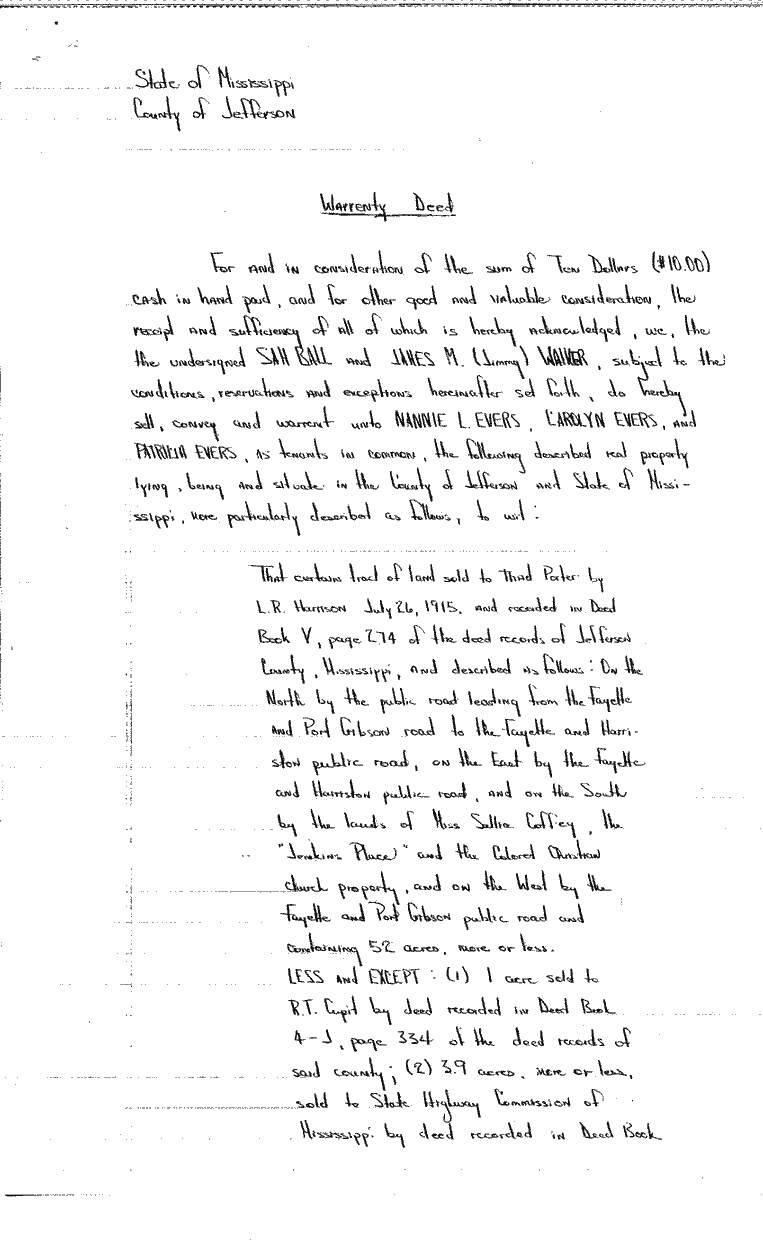 State of Mississippi
County of Jefferson
Warrenty Deed
For and in consideration of the sum of Ten Dollars ($10.00)
cash in hand paid, and for other good and valuable consideration, the
receipt and sufficiency of all of which is hereby acknowledged, we, the
the undersigned SAM BALL and JAMES M. (Jimmy) WALKER, subject to the
conditions, reservations and exceptions hereinafter set forth, do hereby
sell, convey and warrant unto NANNIE L. EVERS, CAROLYN EVERS, and
PATRICIA EVERS, as tenants in common, the following described real property
lying, being and situate in the County of Jefferson and State of Missi-
ssippi, more particularly described as follows, to wit:
That certain tract of land sold to Thad Porter by
L.R. Harrison July 26, 1915, and recorded in Deed
Book V, page 274 of the deed records of Jefferson
County, Mississippi, and described as follows: On the
North by the public road leading from the Fayette
and Port Gibson road to the Fayette and Harri-
ston public road, on the East by the Fayette
and Harriston public road, and on the South
by the lands of Miss Sallie Coffey, the
"Jenkins Place" and the Colored Christian
church property, and on the West by the
Fayette and Port Gibson public road and
containing 52 acres, more or less.
LESS and EXCEPT: (1) 1 acre sold to
R.T. Cupit by deed recorded in Deed Book
4-J, page 334 of the deed records of
said county; (2) 3.9 acres, more or less,
sold to State Highway Commission of
Mississippi by deed recorded in Deed Book